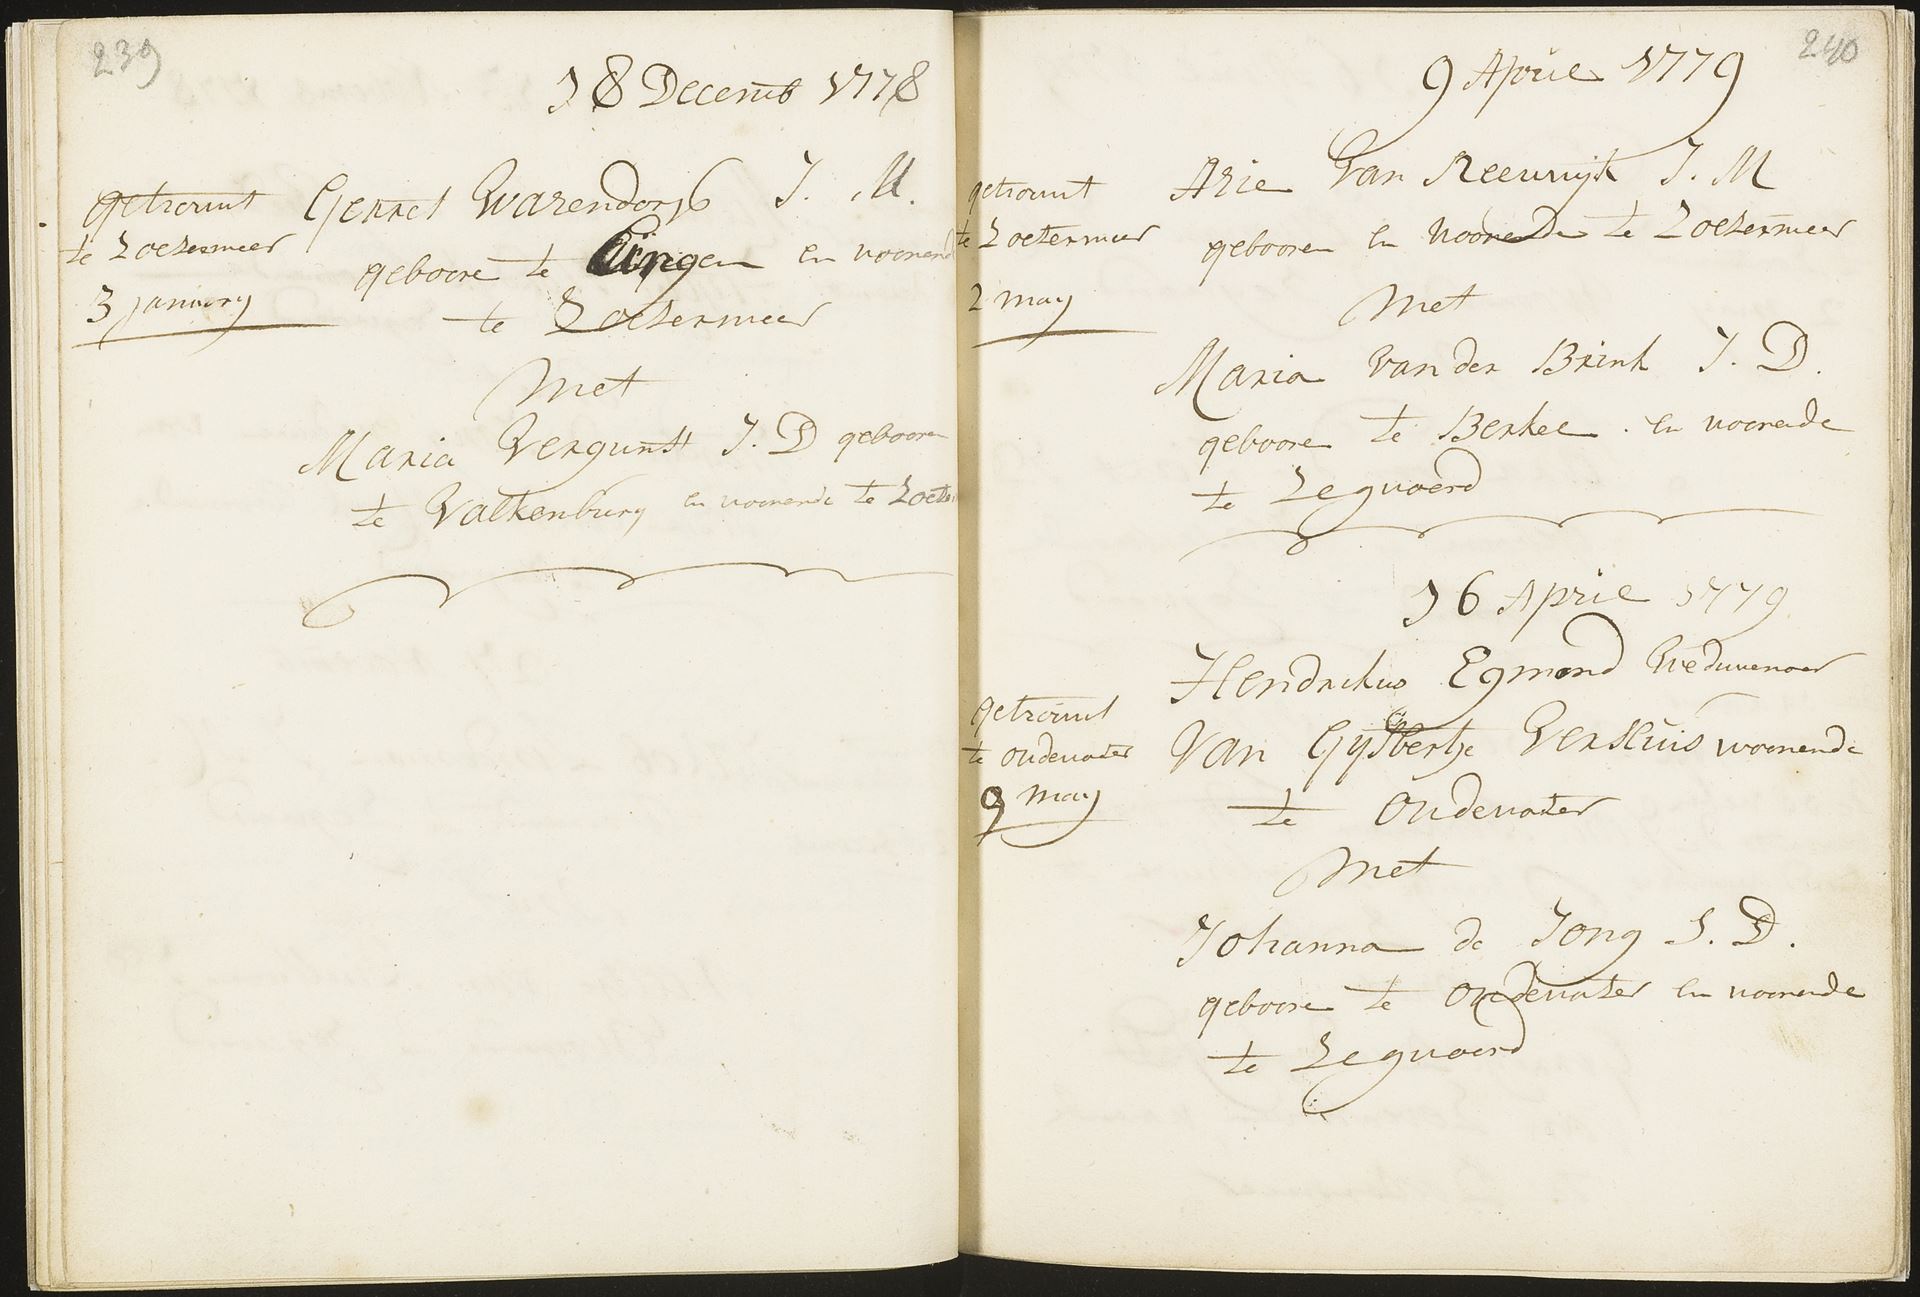 239
18 Decemb 1778
getrouwt
te Zoetermeer
3 january
Gerret Warendorf J. M.
geboore te Lingen en woonend
te Zoetermeer
Met
Maria Vergunst J. D geboore
te Valkenburg en woonende te Zoeter
240
9 April 1779
getrouwt
te Zoetermeer
2 may
Arie Van Reeuwijk J. M
gebooren en woonende te Zoetermeer
Met
Maria van der Brink J. D.
geboore te Berkel en woonende
te Zegwaerd
16 April 1779
getrouwt
te oudewater
9 may
Hendrikus Egmond Weduwenaer
Van Gysbertje Versluis woonende
te Oudewater
Met
Johanna de Jong J. D.
geboore te Oudewater en woonende
te Zegwaerd